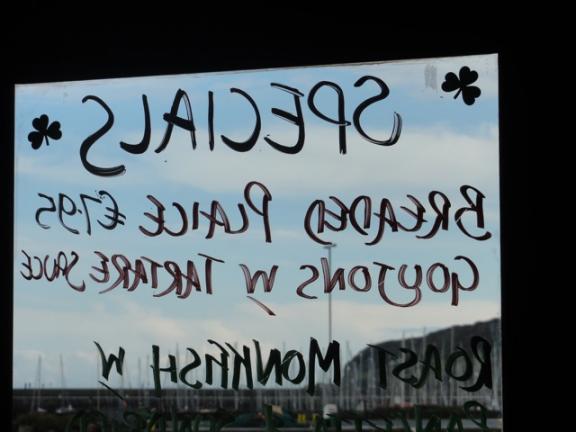 SPECIALS
BREADED PLAICE €7.95
GOUJONS W TARTARE SAUCE
ROAST MONKFISH W